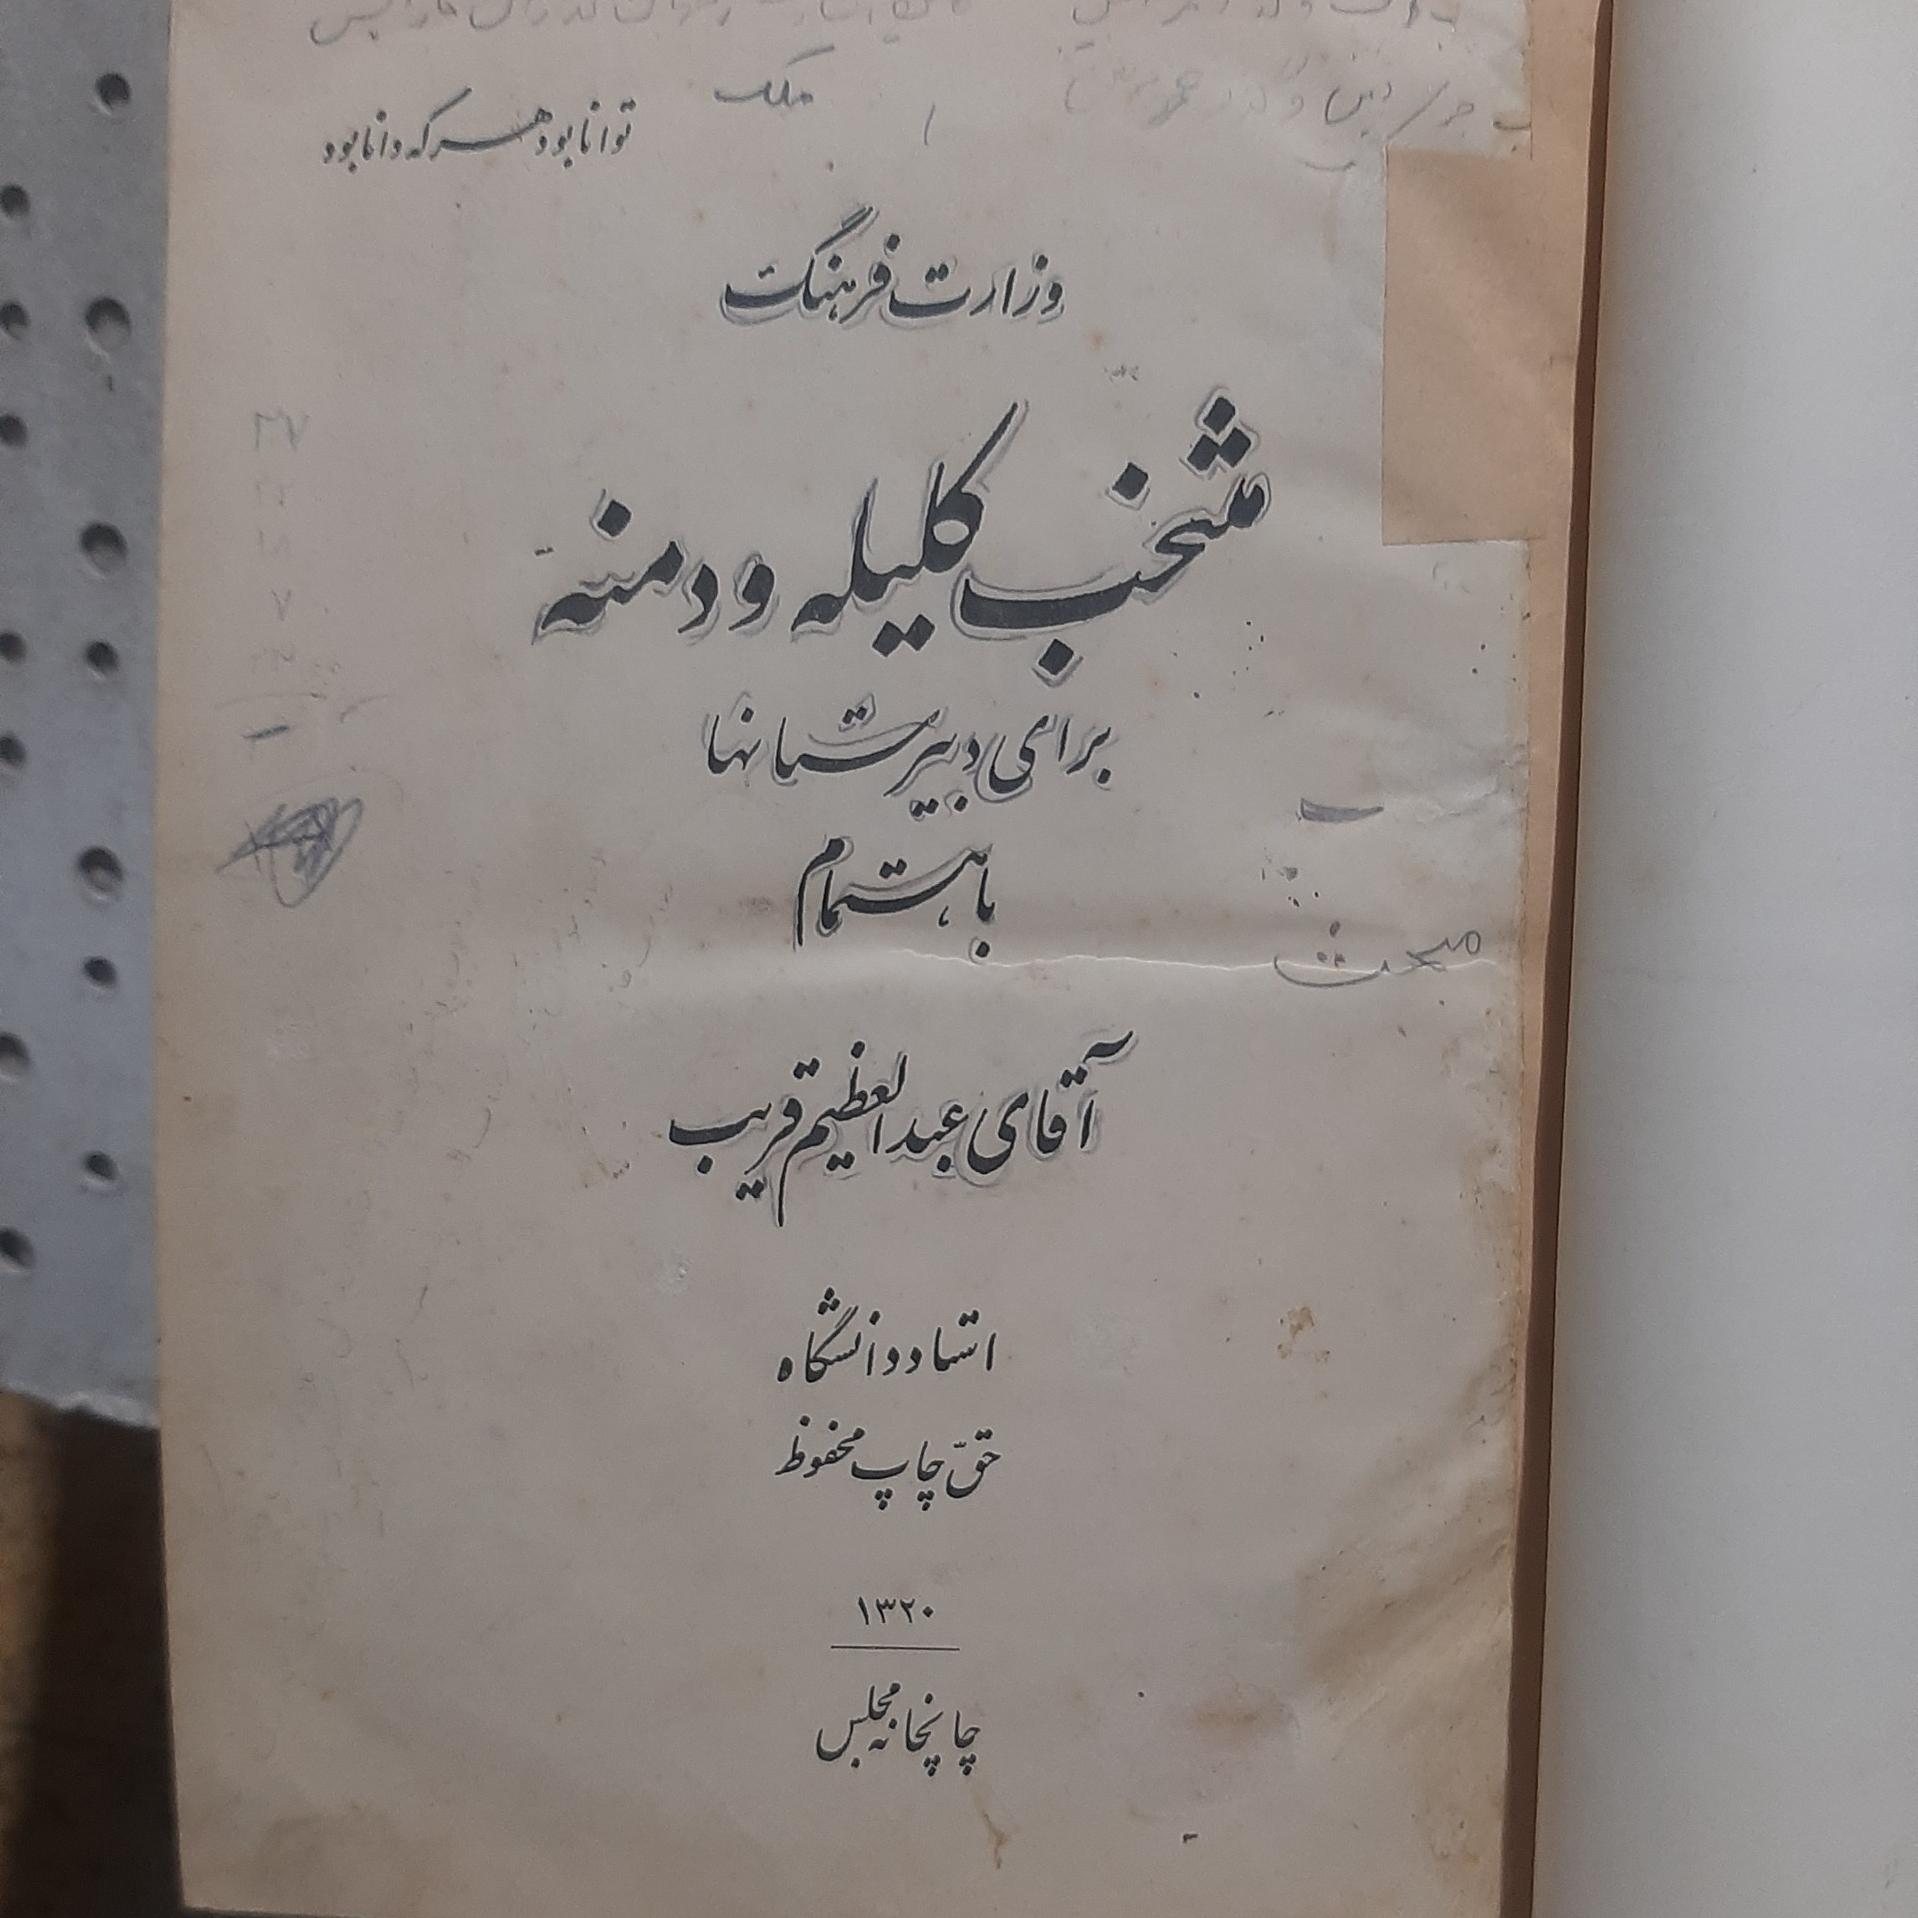 ملک
توانا بود هر که دانا بود
وزارت فرهنگ
منتخب کلیله و دمنه
برای دبیرستانها
باهتمام
مبحث
آقای عبدالعظیم قریب
استاد دانشگاه
حقّ چاپ محفوظ
۱۳۲۰
چاپخانه مجلس